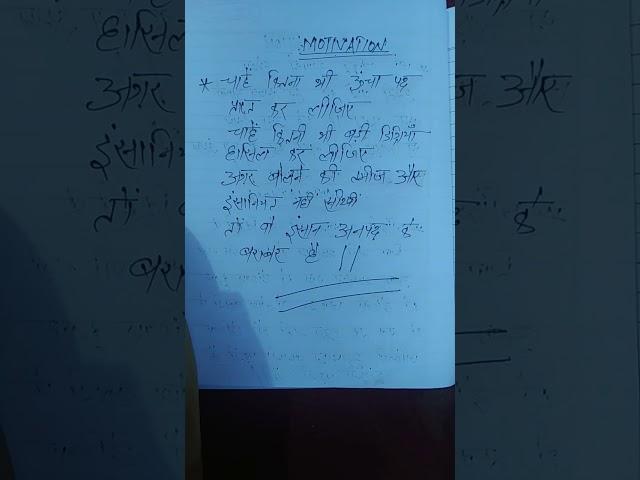 MOTIVATION
* चाहें कितना भी ऊंचा पद
प्राप्त कर लीजिए
चाहें कितनी भी बड़ी डिग्रियाँ
हासिल कर लीजिए
अगर बोलने की तमीज और
इंसानियत नहीं सीखी
तों वो इंसान अनपढ़ के
बराबर है ||